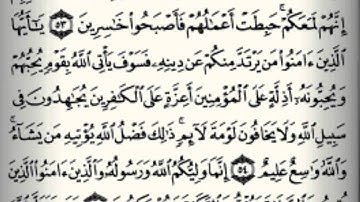 إِنَّهُمْ لَمَعَكُمْ ۚ حَبِطَتْ أَعْمَالُهُمْ فَأَصْبَحُوا۟ خَاسِرِينَ ۝٥٣ يَـٰٓأَيُّهَا
الَّذِينَ ءَامَنُوا۟ مَن يَرْتَدَّ مِنكُمْ عَن دِينِهِۦ فَسَوْفَ يَأْتِى اللَّهُ بِقَوْمٍ يُحِبُّهُمْ
وَيُحِبُّونَهُۥٓ أَذِلَّةٍ عَلَى الْمُؤْمِنِينَ أَعِزَّةٍ عَلَى الْكَـٰفِرِينَ يُجَـٰهِدُونَ فِى
سَبِيلِ اللَّهِ وَلَا يَخَافُونَ لَوْمَةَ لَآئِمٍ ۚ ذَٰلِكَ فَضْلُ اللَّهِ يُؤْتِيهِ مَن يَشَآءُ ۚ
وَاللَّهُ وَٰسِعٌ عَلِيمٌ ۝٥٤ إِنَّمَا وَلِيُّكُمُ اللَّهُ وَرَسُولُهُۥ وَالَّذِينَ ءَامَنُوا۟ الَّذِينَ